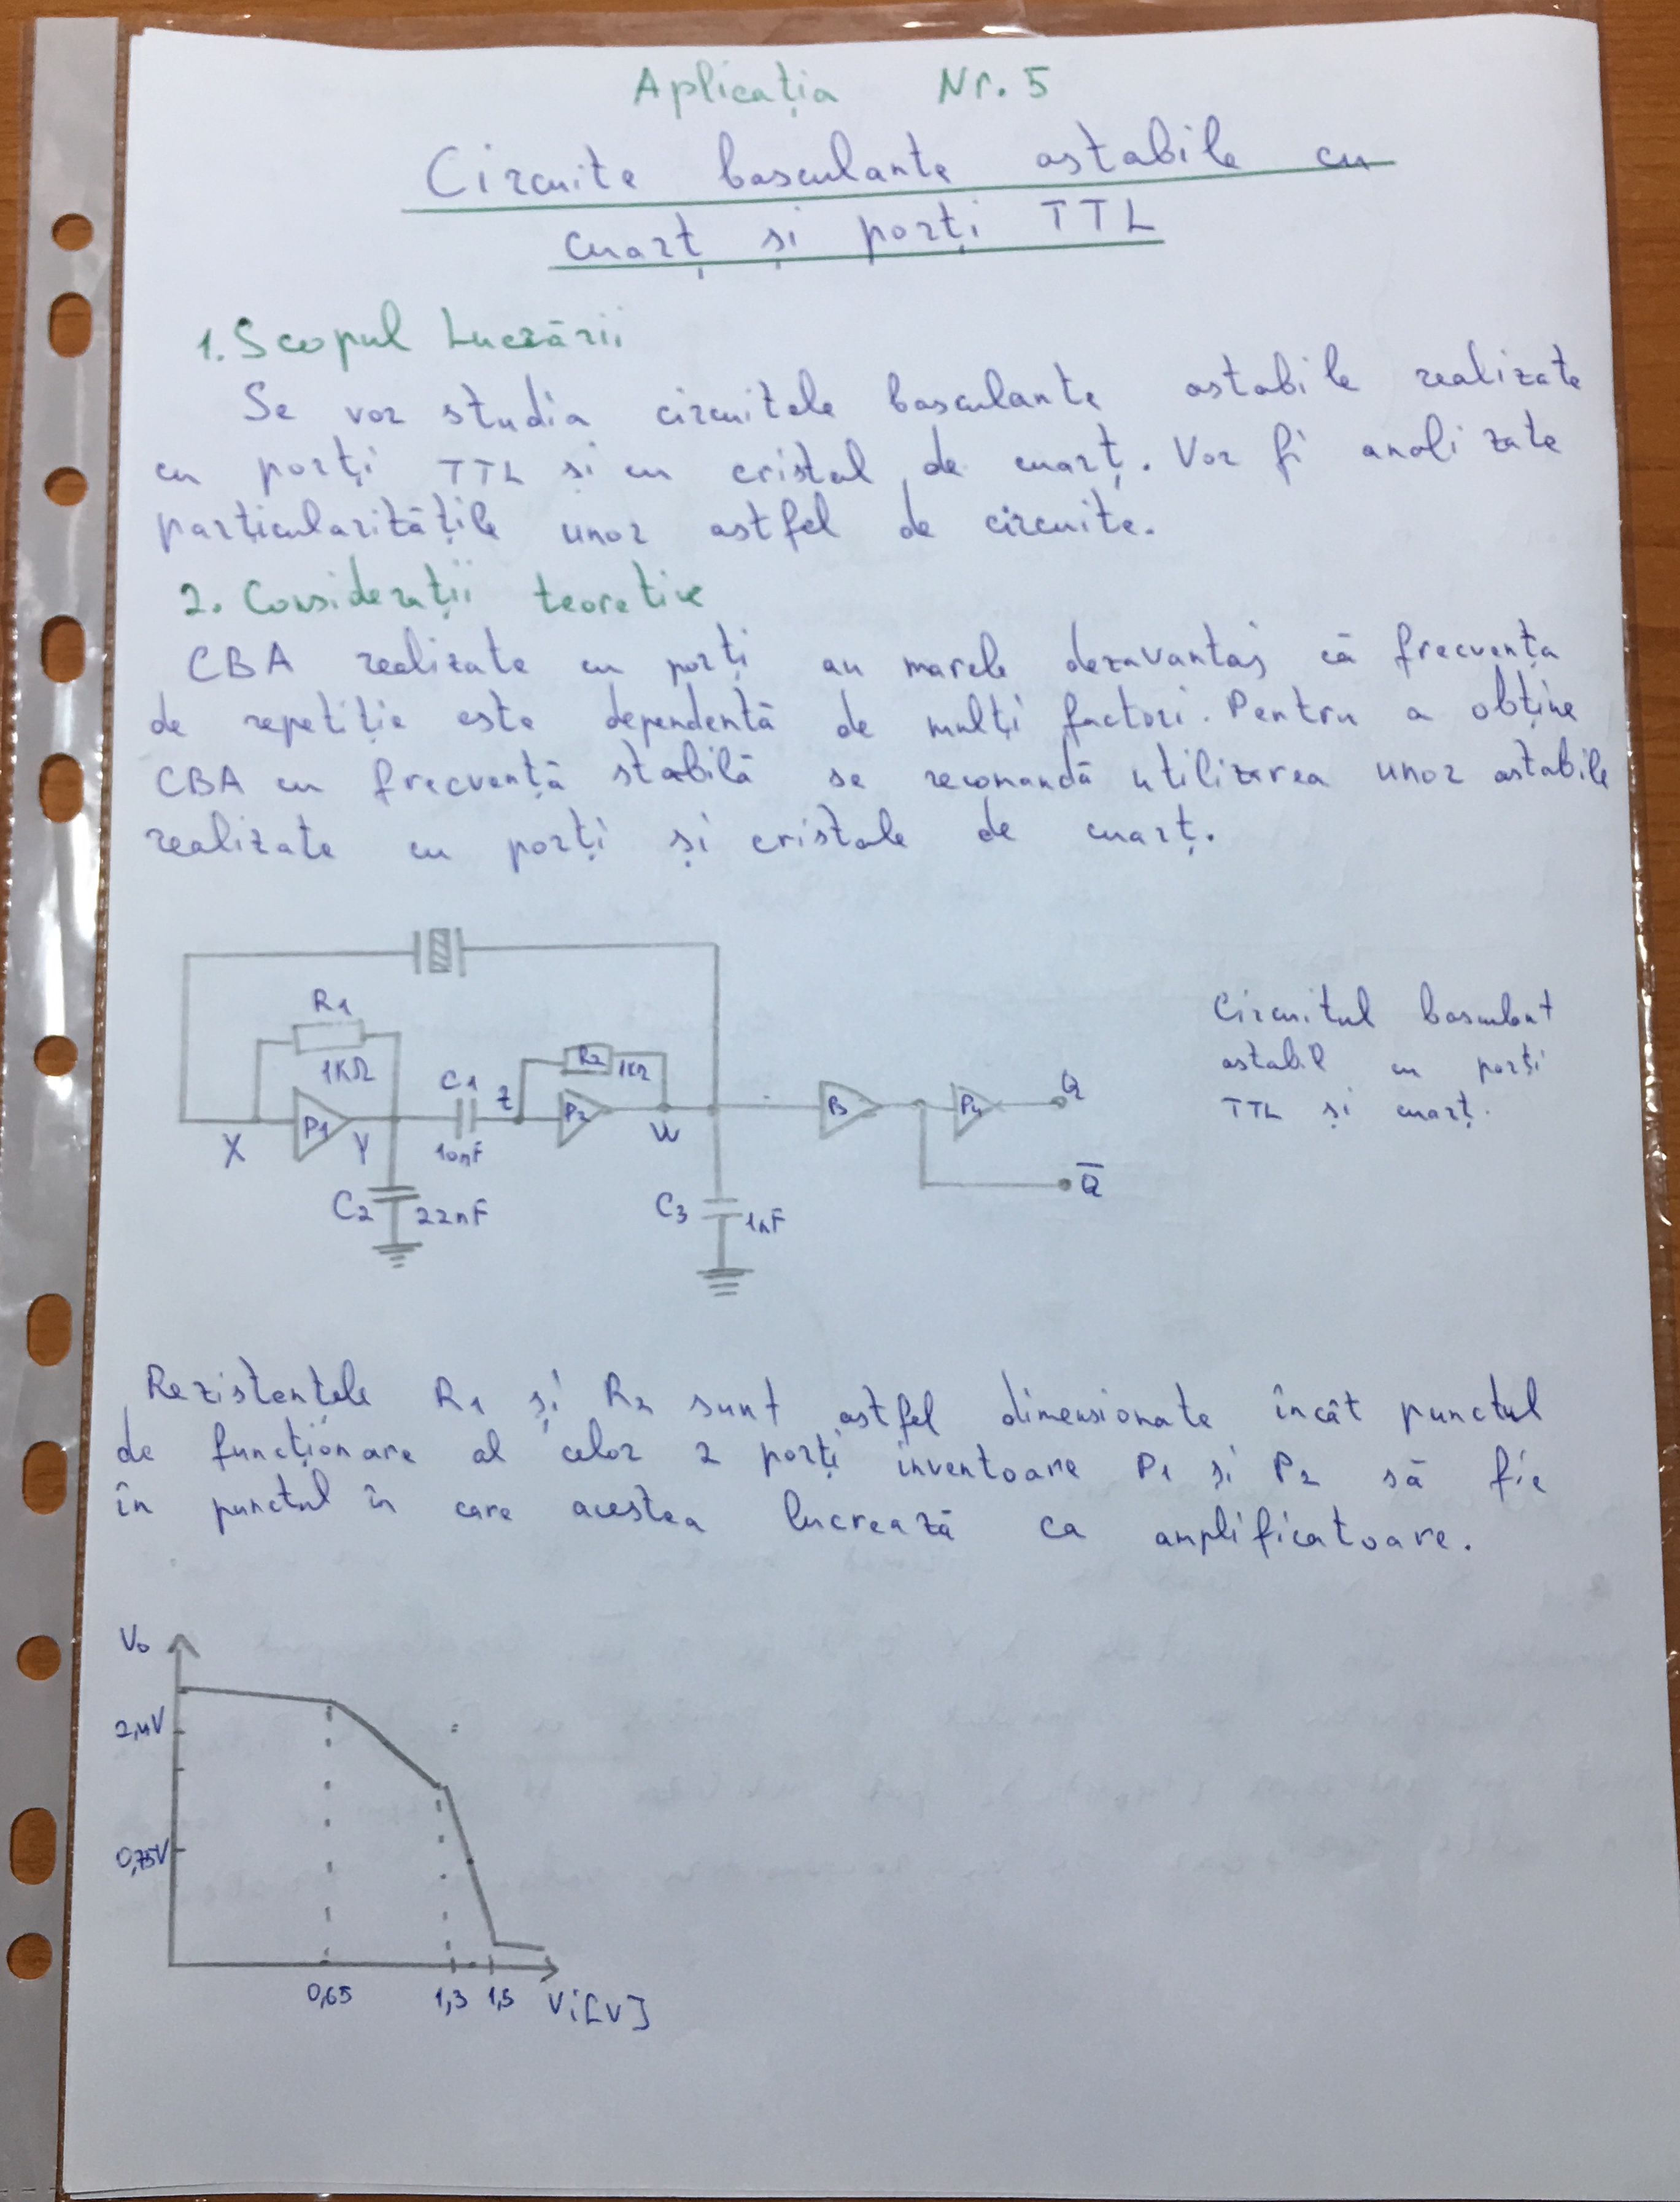 Aplicația Nr. 5
Circuite basculante astabile cu
cuarț și porți TTL
1. Scopul Lucrării
Se vor studia circuitele basculante astabile realizate
cu porți TTL și cu cristal de cuarț. Vor fi analizate
particularitățile unor astfel de circuite.
2. Considerații teoretice
CBA realizate cu porți au marele dezavantaj că frecvența
de repetiție este dependentă de mulți factori. Pentru a obține
CBA cu frecvență stabilă se recomandă utilizarea unor astabile
realizate cu porți și cristale de cuarț.
R1
1KΩ
C1
10nF
R2
1KΩ
X
P1
Y
Z
P2
W
P3
P4
Q
Q̅
C2
22nF
C3
1nF
Circuitul basculant
astabil cu porți
TTL și cuarț.
Rezistențele R1 și R2 sunt astfel dimensionate încât punctul
de funcționare al celor 2 porți inventoare P1 și P2 să fie
în punctul în care acestea lucrează ca amplificatoare.
Vo
2,4V
0,75V
0,65
1,3
1,5
Vi[V]